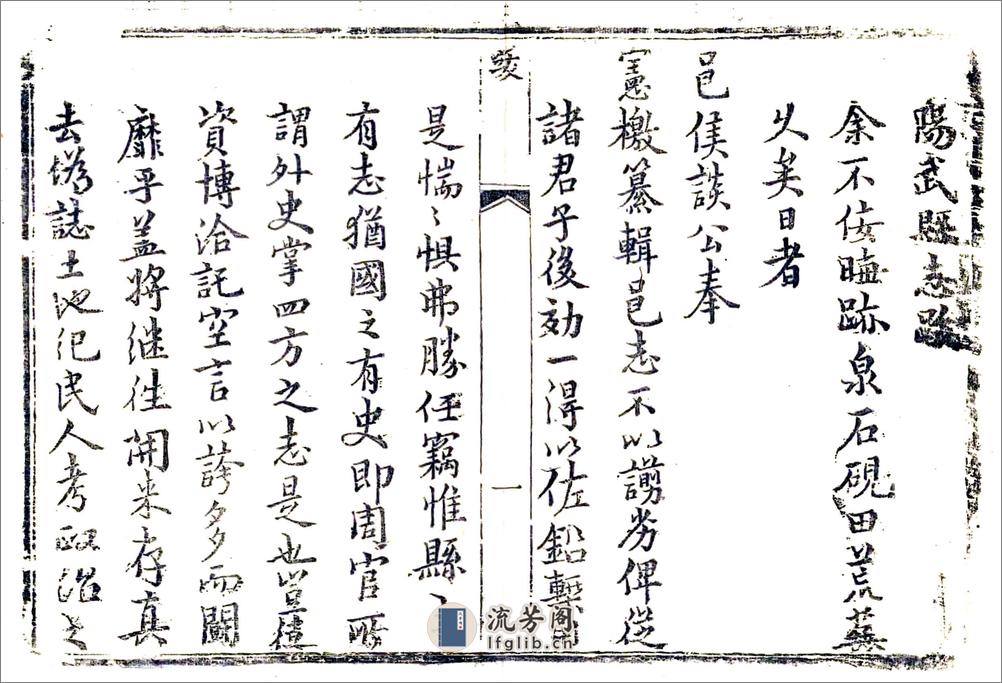 陽武縣志跋
余不佞晦跡泉石硯田荒蕪
久矣日者
邑侯談公奉
憲檄纂輯邑志不以謭劣俾從
諸君子後効一得以佐鉛槧
跋
一
是惴〻惧弗勝任竊惟縣之
有志猶國之有史即周官所
謂外史掌四方之志是也豈徒
資博洽託空言以誇多而鬭
靡乎盖將继往開来存真
去偽誌土地纪民人考政治之
流芳阁
lfglib.cn